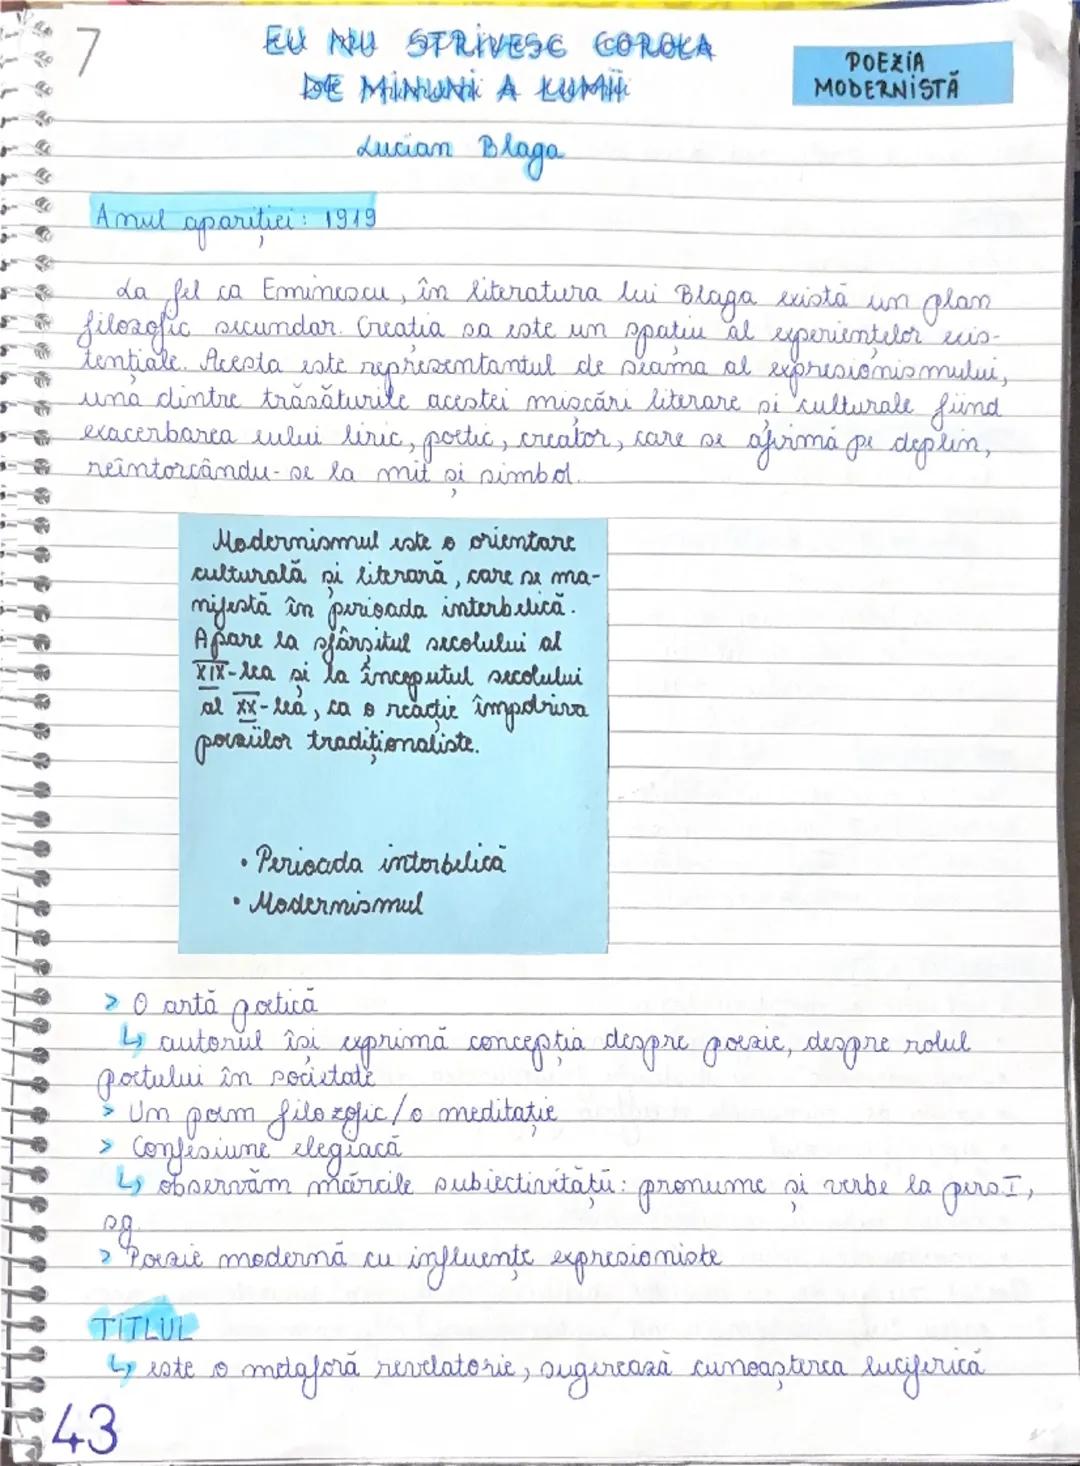 7
EU NU STRIVESC COROLA
DE MINUNI A LUMII
POEZIA
MODERNISTĂ
Lucian Blaga
Anul apariției: 1919
La fel ca Eminescu, în literatura lui Blaga există un plan
filozofic secundar. Creația sa este un spațiu al experiențelor exis-
tențiale. Acesta este reprezentantul de seamă al expresionismului,
una dintre trăsăturile acestei mișcări literare și culturale fiind
exacerbarea eului liric, poetic, creator, care se afirmă pe deplin,
reîntorcându-se la mit și simbol.
Modernismul este o orientare
culturală și literară, care se ma-
nifestă în perioada interbelică.
Apare la sfârșitul secolului al
XIX-lea și la începutul secolului
al XX-lea, ca o reacție împotriva
poeziilor tradiționaliste.
• Perioada interbelică
• Modernismul
> O artă poetică
↳ autorul își exprimă concepția despre poezie, despre rolul
poetului în societate
> Un poem filozofic/o meditație
> Confesiune elegiacă
↳ observăm mărcile subiectivității: pronume și verbe la pers I,
sg.
> Poezie modernă cu influențe expresioniste
TITLUL
↳ este o metaforă revelatorie, sugerează cunoașterea luciferică
43